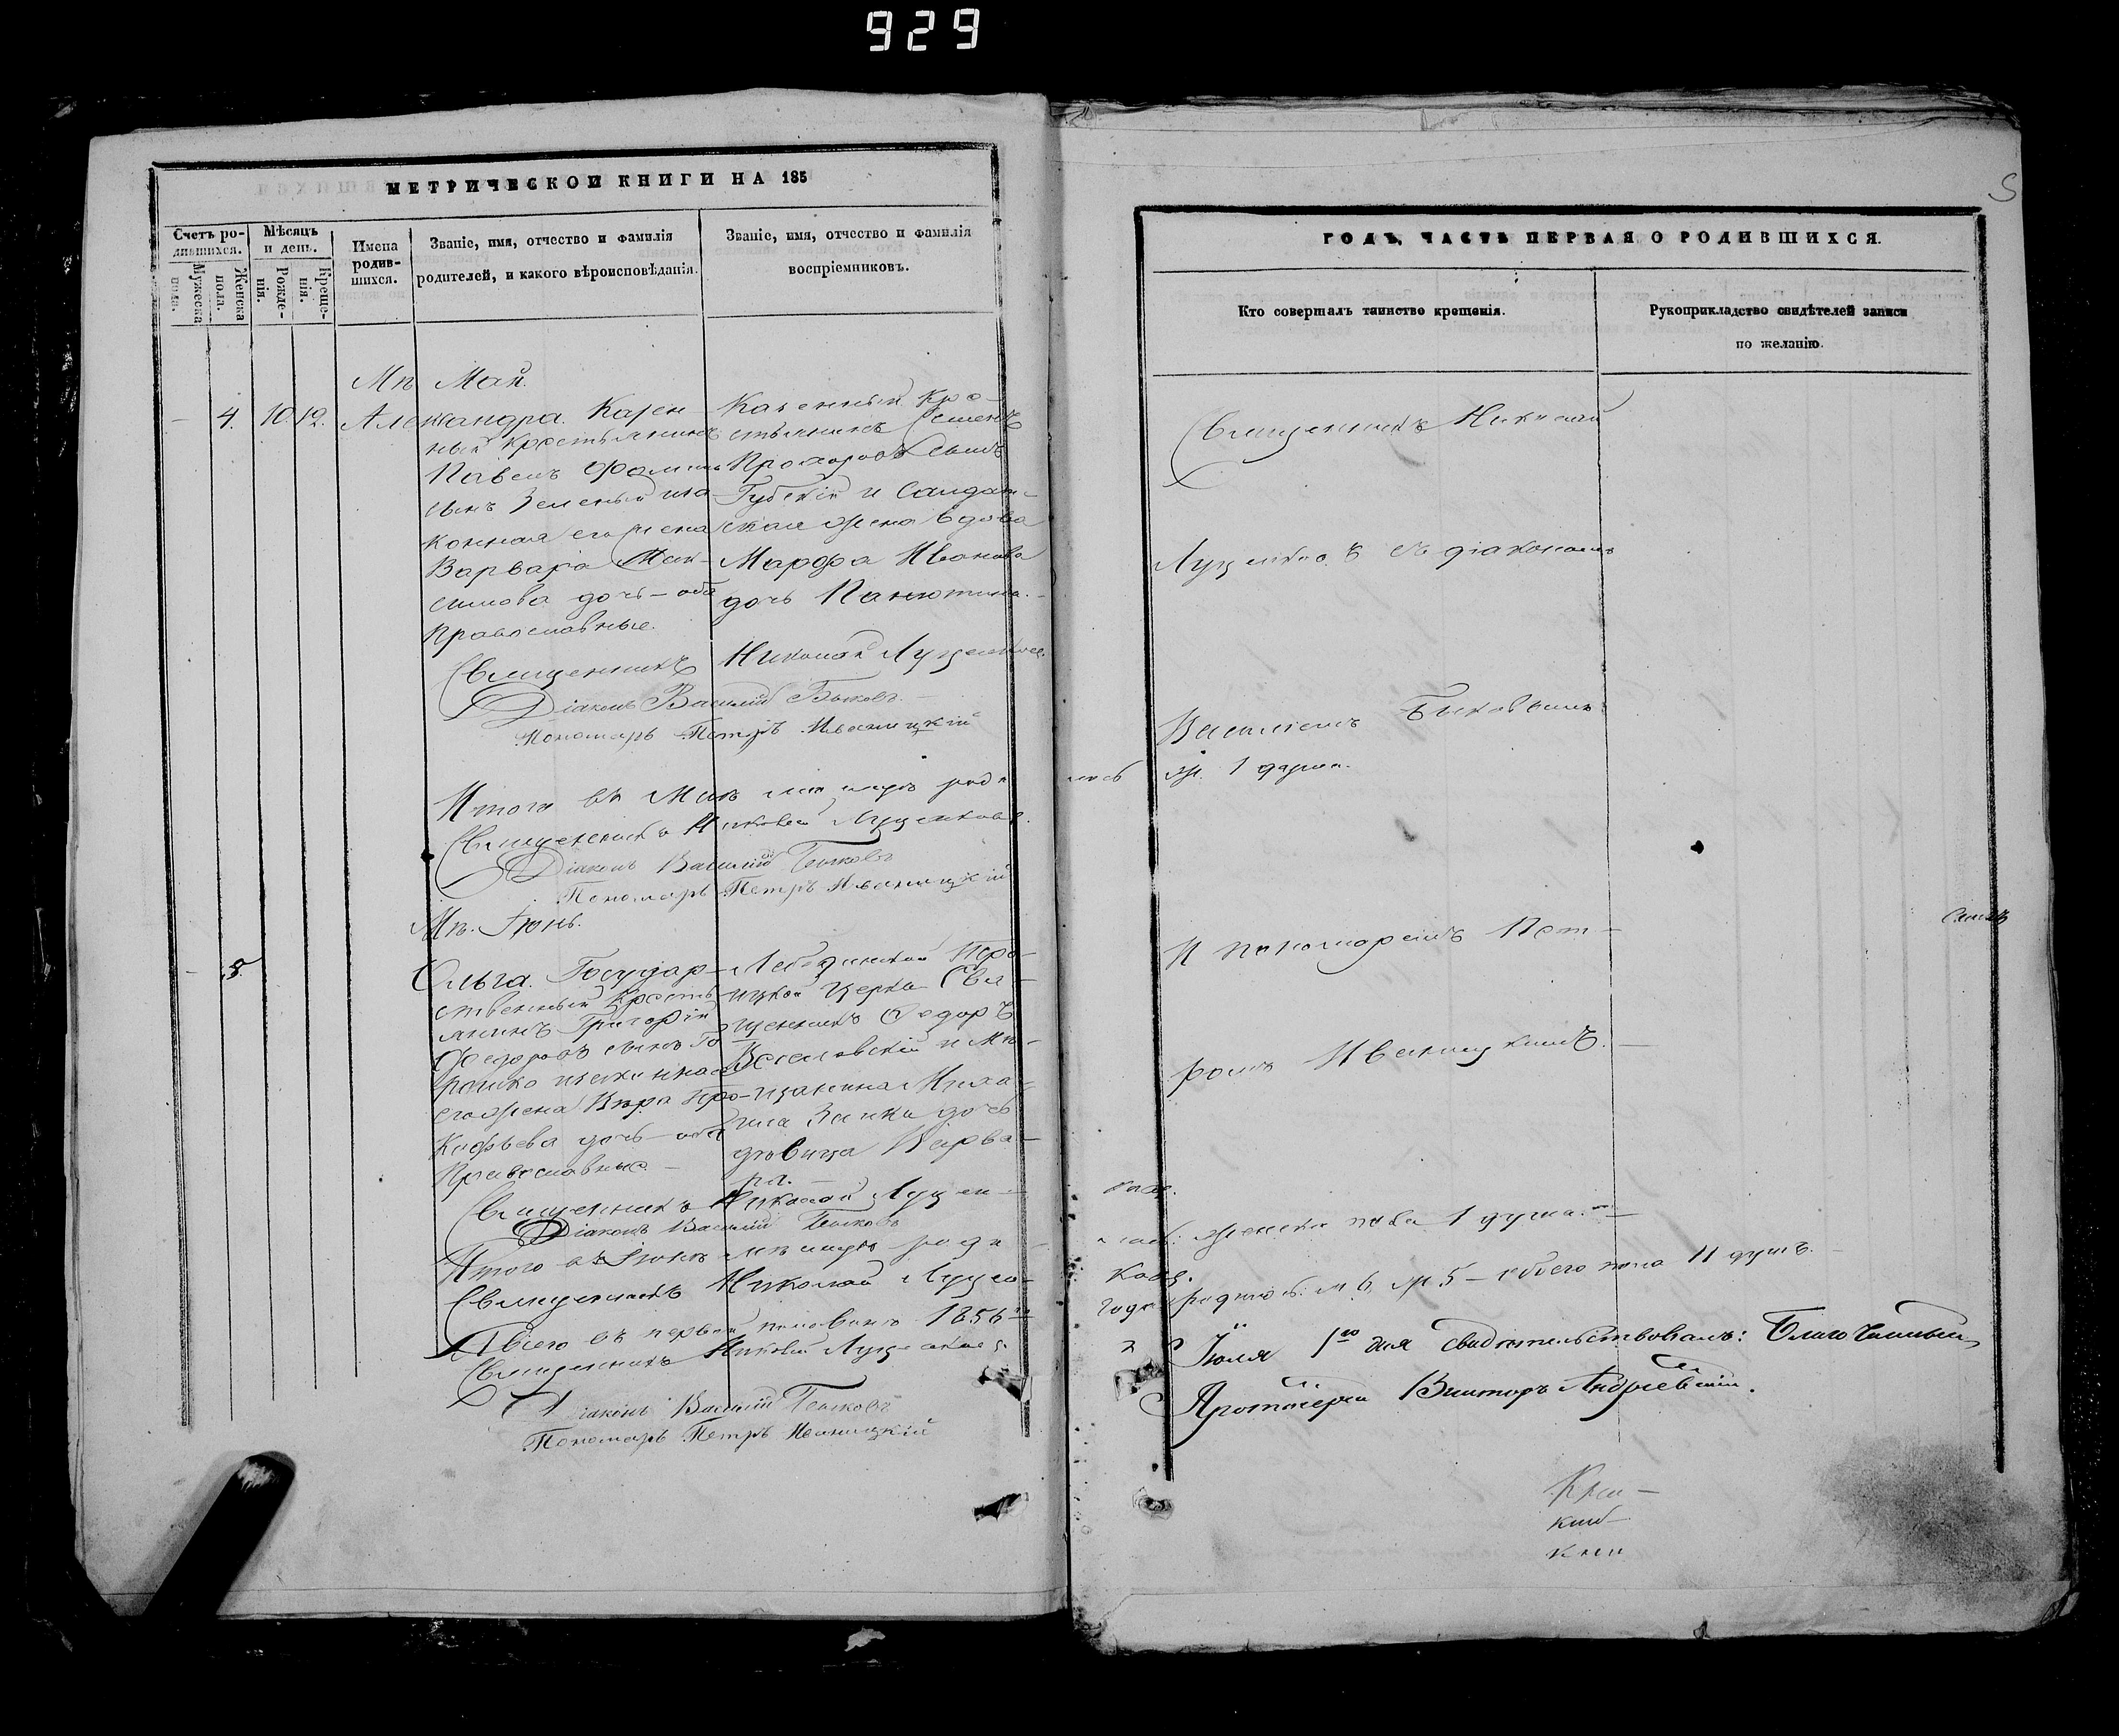 929
МЕТРИЧЕСКОЙ КНИГИ НА 185
Счетъ ро-
дившихся.
Мужеска
пола.
Женска
пола.
Мѣсяцъ
и день.
Рожде-
нія.
Креще-
нія.
Имена
родив-
шихся.
Званіе, имя, отчество и фамилія
родителей, и какого вѣроисповѣданія.
Званіе, имя, отчество и фамилія
воспріемниковъ.
Мц. Май.
4. 10. 12. Александра.
Казен-
ный Крестьянинъ
Павелъ Ѳоминъ
сынъ Зеленый и за-
конная его жена
Варвара Мак-
симова дочь – оба
Православные.
Казенный Кре-
стьянинъ Семенъ
Прохоровъ сынъ
Губскій и Салдат-
ская жена вдова
Марѳа Иванова
дочь Панютина.
Священникъ Николай
Діаконъ Василій Быковъ.
Пономарь Петръ Иваницкій
Итого въ Маѣ мѣсяцѣ роди
Священникъ Николай
Діаконъ Василій Быковъ
Пономарь Петръ Иваницкій
Мц. Іюнь.
5
Ольга.
Государ-
ственный Кресть-
янинъ Григорій
Ѳедоровъ сынъ
законная
его жена Вѣра Про-
кофьева дочь – оба
Православные. –
Лебединской Тро-
ицкой церкви Свя-
щенникъ Ѳедоръ
и Мѣ-
щанина Миха-
ила дочь
дѣвица Варва-
ра. –
Священникъ Николай
Діаконъ Василій Быковъ
Итого въ Іюнѣ мѣсяцѣ роди –
Священникъ Николай
Всего въ первой половинѣ 1856го
Священникъ Николай
Діаконъ Василій Быковъ
Пономарь Петръ Иваницкій
5
ГОДЪ, ЧАСТЬ ПЕРВАЯ О РОДИВШИХСЯ.
Кто совершалъ таинство крещенія.
Рукоприкладство свидѣтелей записи
по желанію.
Священникъ Николай
съ діакономъ
Василіемъ Быковымъ
лось ж. 1 душа.
И пономаремъ Пет-
ромъ Иваницкимъ. –
женска пола 1 душа. –
года родилось: м. 6, ж. 5 – обоего пола 11 душъ. –
Іюля 1го дня свидѣтельствовалъ: Благочинный
Протоіерей Викторъ Андріевскій.